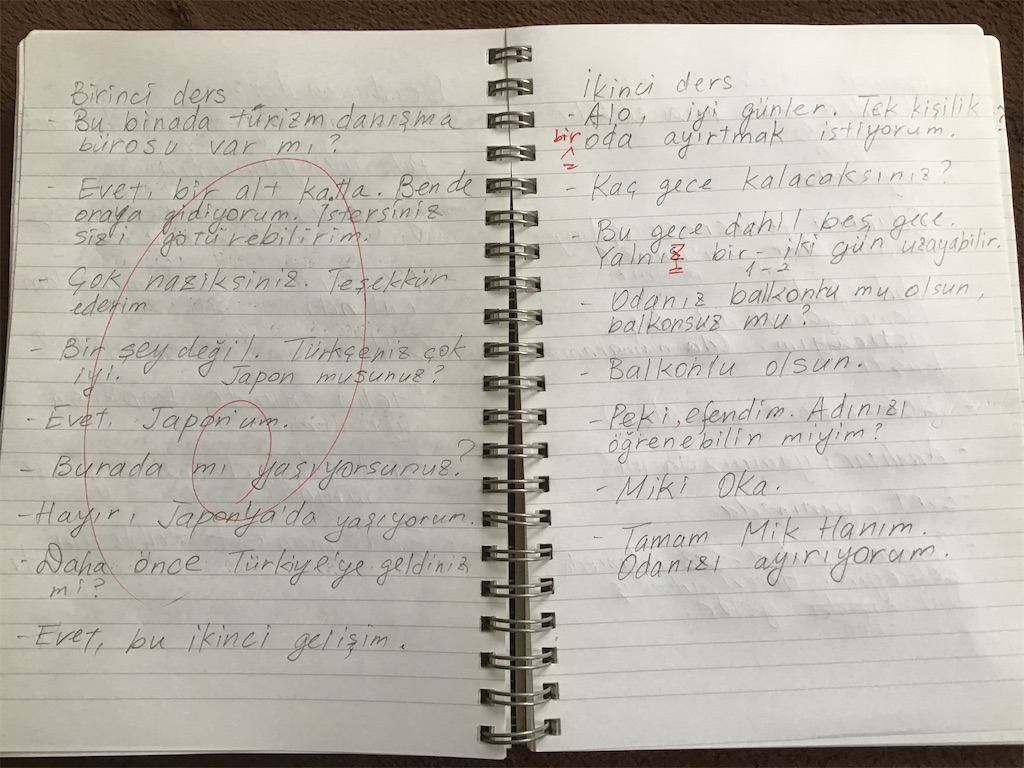 Birinci ders
- Bu binada türizm danışma
bürosu var mı?
- Evet, bir alt katta. Bende
oraya gidiyorum. İstersiniz
sizi götürebilirim.
- Çok naziksiniz. Teşekkür
ederim
- Bir şey değil. Türkçeniz çok
iyi. Japon musunuz?
- Evet. Japon'um.
- Burada mı yaşıyorsunuz?
- Hayır, Japonya'da yaşıyorum.
- Daha önce Türkiye'ye geldiniz
mi?
- Evet, bu ikinci gelişim.
İkinci ders
- Alo, iyi günler. Tek kişilik
bir oda ayırtmak istiyorum.
- Kaç gece kalacaksınız?
- Bu gece dahil beş gece.
Yalnız bir - iki gün uzayabilir.
1-2
- Odanız balkonlu mu olsun,
balkonsuz mu?
- Balkonlu olsun.
- Peki, efendim. Adınızı
öğrenebilir miyim?
- Miki Oka.
- Tamam Mik Hanım.
Odanızı ayırıyorum.